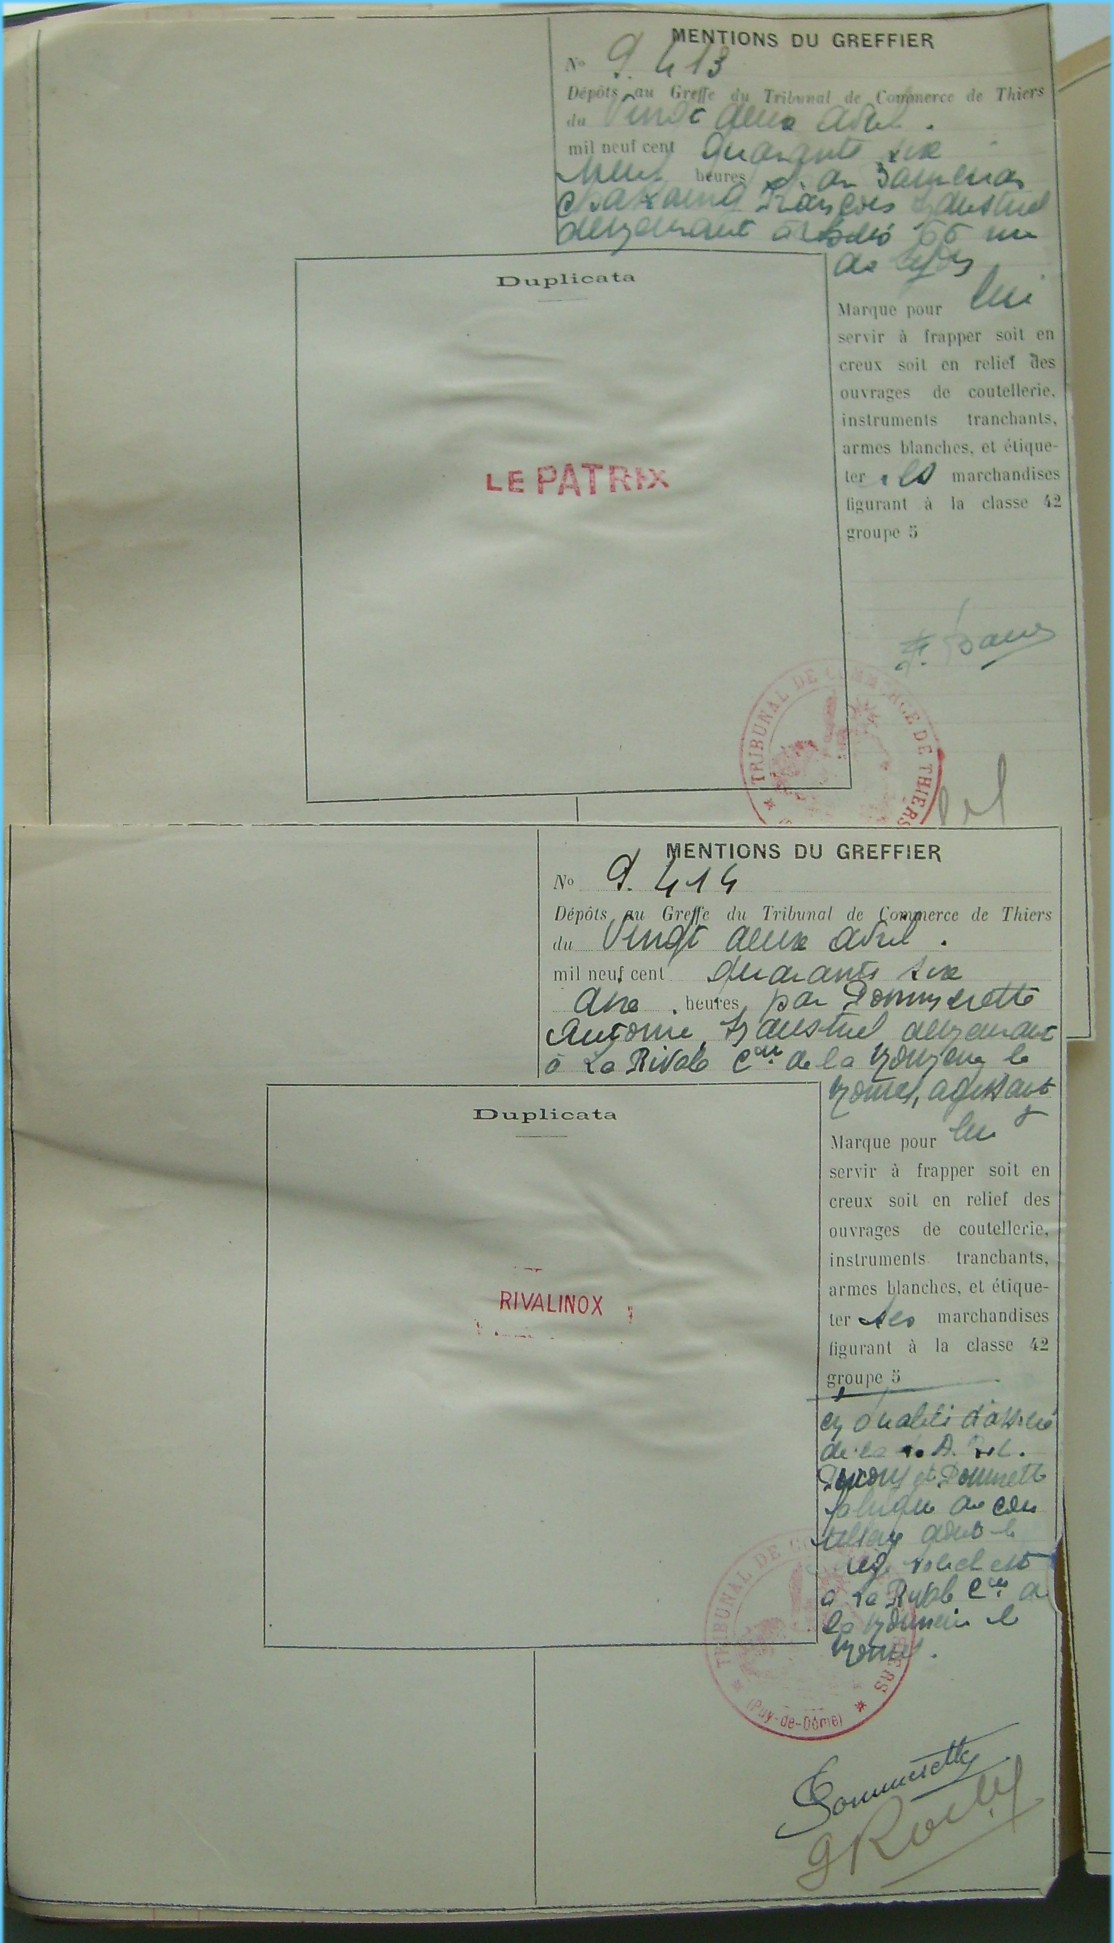 MENTIONS DU GREFFIER
No 9.413
Dépôts au Greffe du Tribunal de Commerce de Thiers
du Vingt deux avril.
mil neuf cent quarante six
heures par
François Industriel
demeurant à 66 rue
de
Duplicata
Marque pour lui
servir à frapper soit en
creux soit en relief des
ouvrages de coutellerie,
instruments tranchants,
armes blanches, et étique-
ter ses marchandises
figurant à la classe 42
groupe 5
LE PATRIX
TRIBUNAL DE COMMERCE DE THIERS
MENTIONS DU GREFFIER
No 9.414
Dépôts au Greffe du Tribunal de Commerce de Thiers
du Vingt deux avril.
mil neuf cent quarante six
heures par Pommerette
Antoine, Industriel demeurant
à La Rivale Cne de la Monnerie le
Montel, agissant
Duplicata
Marque pour lui
servir à frapper soit en
creux soit en relief des
ouvrages de coutellerie,
instruments tranchants,
armes blanches, et étique-
ter ses marchandises
figurant à la classe 42
groupe 5
RIVALINOX
en qualité d'associé
de la S.A.R.L.
et Pommerette
fabrique de cou
tellerie dont le
siège social est
à La Rivale Cne de
la Monnerie le
Montel.
TRIBUNAL DE COMMERCE DE THIERS
(Puy-de-Dôme)
Pommerette